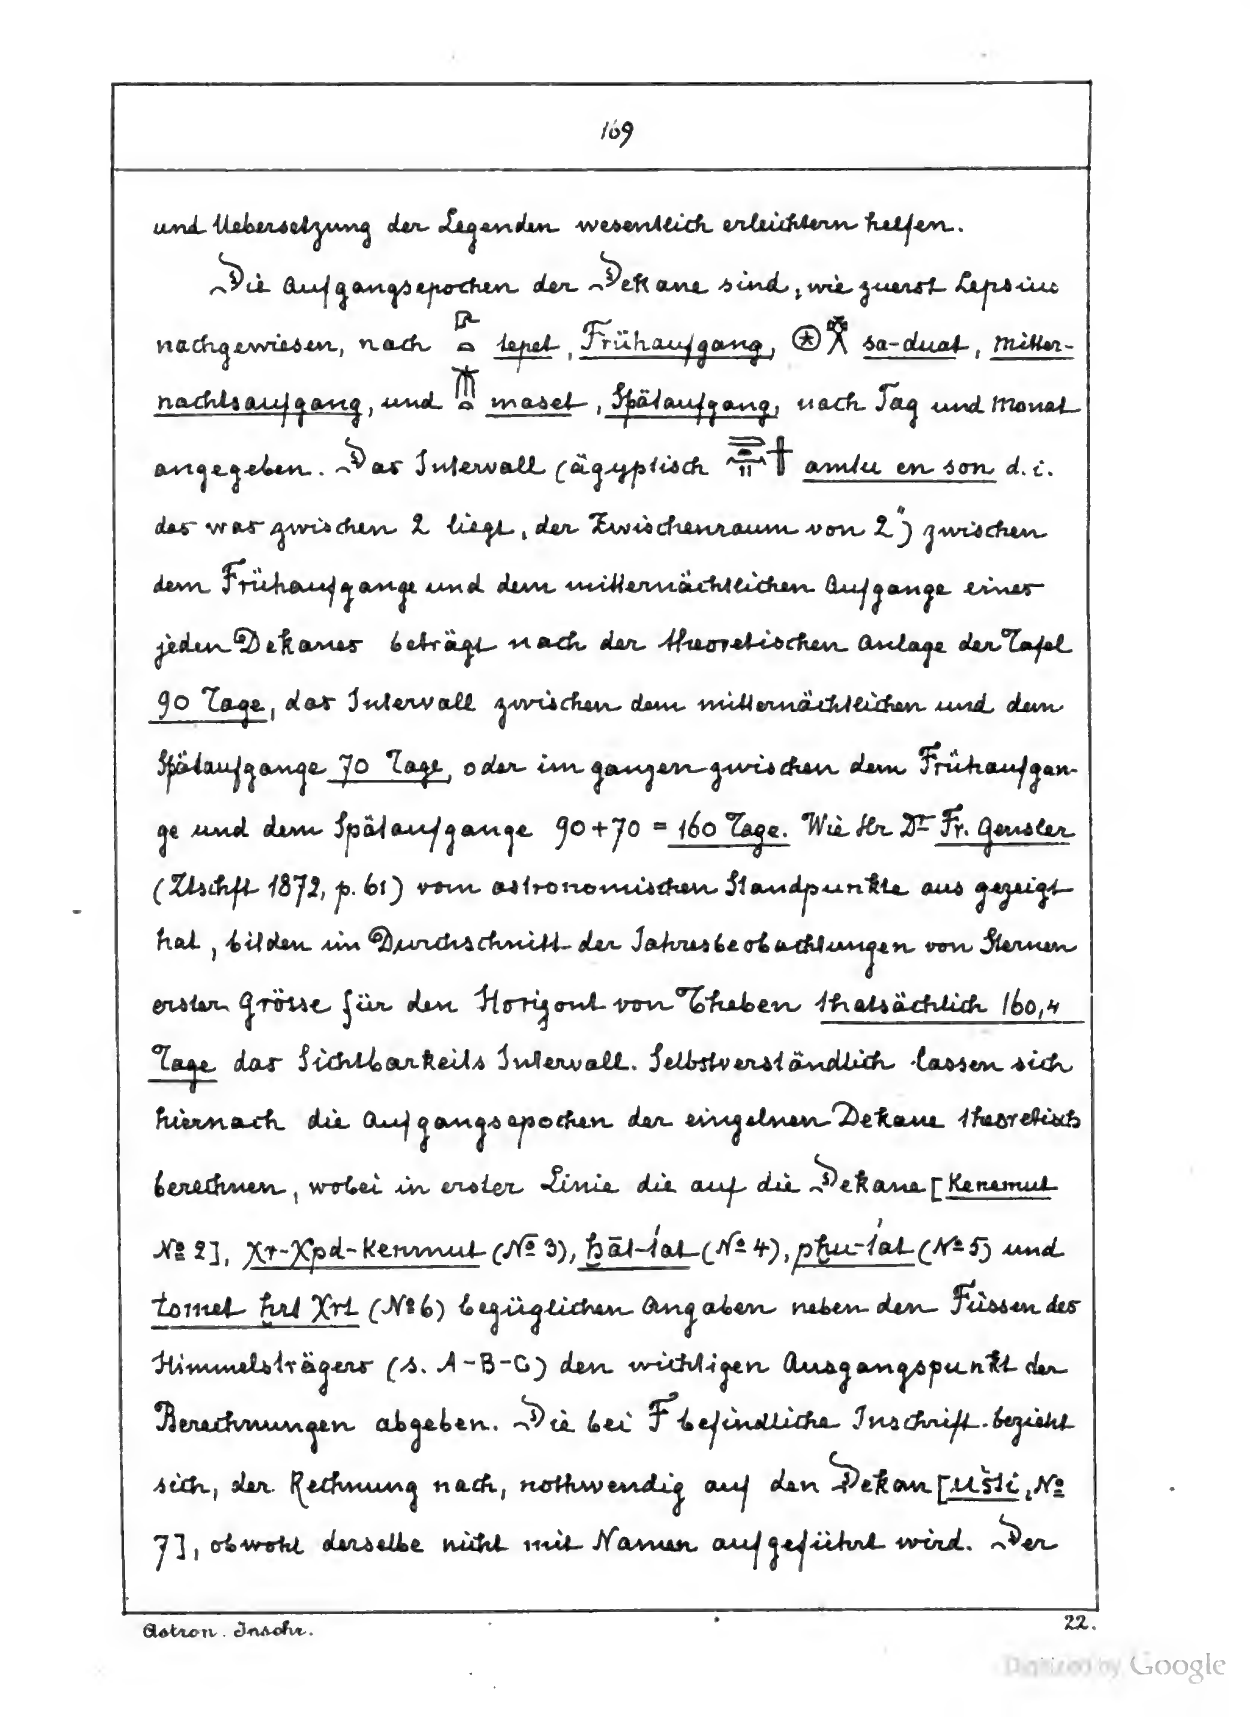 169
und Uebersetzung der Legenden wesentlich erleichtern helfen.
Die Aufgangsepochen der Dekane sind, wie zuerst Lepsius
nachgewiesen, nach tepet, Frühaufgang, sa-duat, Mitter-
nachtsaufgang, und maset, Spätaufgang, nach Tag und Monat
angegeben. Das Intervall (ägyptisch amtu en son d. i.
das was zwischen 2 liegt, der Zwischenraum von 2") zwischen
dem Frühaufgange und dem mitternächtlichen Aufgange eines
jeden Dekanes beträgt nach der theoretischen Anlage der Tafel
90 Tage, das Intervall zwischen dem mitternächtlichen und dem
Spätaufgange 70 Tage, oder im ganzen zwischen dem Frühaufgan-
ge und dem Spätaufgange 90+70 = 160 Tage. Wie Hr Dr Fr. Gensler
(Ztschft 1872, p. 61) vom astronomischen Standpunkte aus gezeigt
hat, bilden im Durchschnitt der Jahresbeobachtungen von Sternen
erster Grösse für den Horizont von Theben thatsächlich 160,4
Tage das Sichtbarkeits Intervall. Selbstverständlich lassen sich
hiernach die Aufgangsepochen der einzelnen Dekane theoretisch
berechnen, wobei in erster Linie die auf die Dekane [Kenemut
№ 2], Xr-Xpd-Kenmut (№ 3), ḥāt-t́at (№ 4), pḥu-t́at (№ 5) und
tomet ḥrt Xrt (№ 6) bezüglichen Angaben neben den Füssen des
Himmelsträgers (s. A-B-C) den wichtigen Ausgangspunkt der
Berechnungen abgeben. Die bei F befindliche Inschrift bezieht
sich, der Rechnung nach, nothwendig auf den Dekan [ušti, №
7], obwohl derselbe nicht mit Namen aufgeführt wird. Der
Astron. Inschr.
22.
Digitized by Google